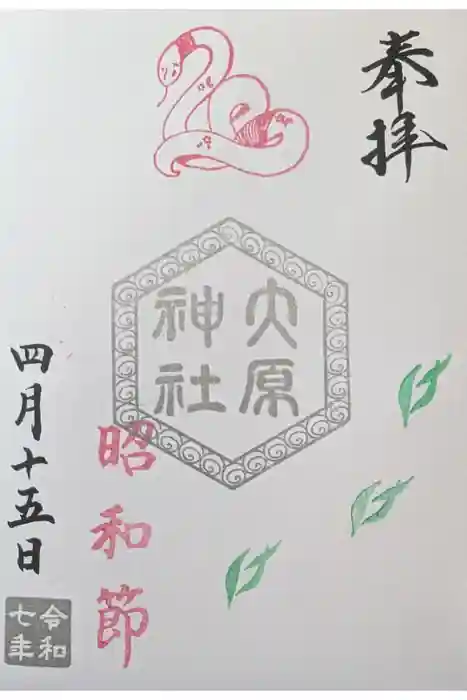 奉拝
大原
神社
昭和節
四月十五日
令和
七年